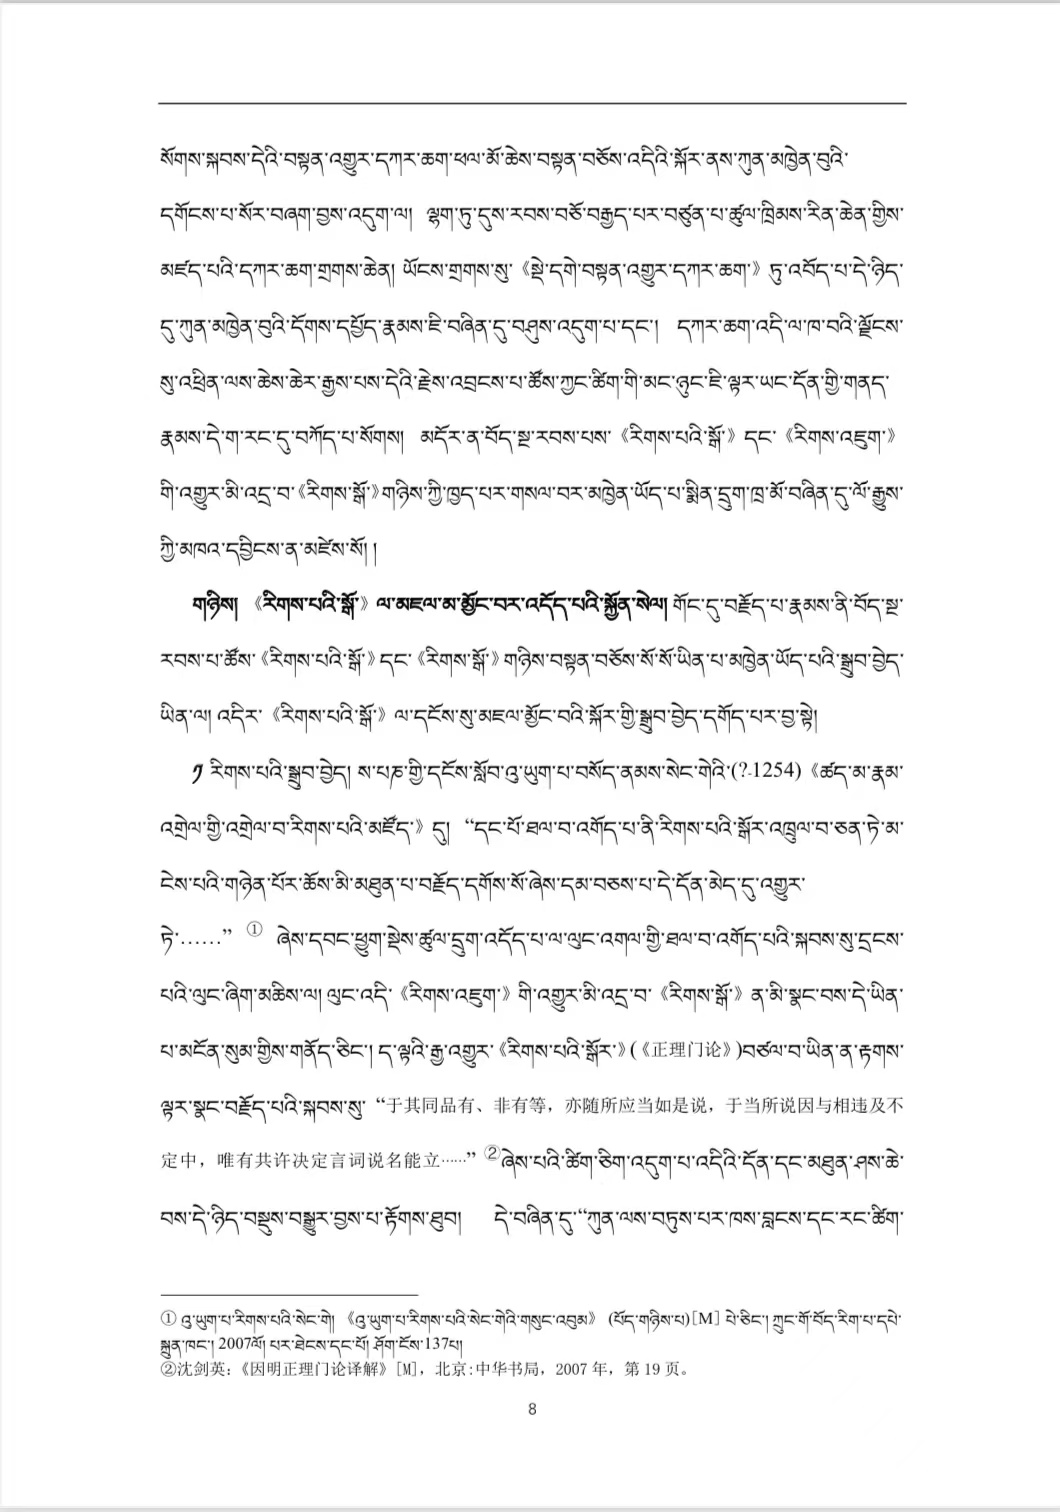 སོགས་སྐབས་དེའི་བསྟན་འགྱུར་དཀར་ཆག་ཕལ་མོ་ཆེས་བསྟན་བཅོས་འདིའི་སྐོར་ནས་ཀུན་མཁྱེན་བུའི་
དགོངས་པ་སོར་བཞག་བྱས་འདུག་ལ། ལྷག་ཏུ་དུས་རབས་བཅོ་བརྒྱད་པར་བཙུན་པ་ཚུལ་ཁྲིམས་རིན་ཆེན་གྱིས་
མཛད་པའི་དཀར་ཆག་གྲགས་ཆེན། ཡོངས་གྲགས་སུ་《སྡེ་དགེ་བསྟན་འགྱུར་དཀར་ཆག་》ཏུ་འབོད་པ་དེ་ཉིད་
དུ་ཀུན་མཁྱེན་བུའི་དོགས་དཔྱོད་རྣམས་ཇི་བཞིན་དུ་བཤུས་འདུག་པ་དང་། དཀར་ཆག་འདི་ལ་ཁ་བའི་ལྗོངས་
སུ་འཕྲིན་ལས་ཆེས་ཆེར་རྒྱས་པས་དེའི་རྗེས་འབྲངས་པ་ཚོས་ཀྱང་ཚིག་གི་མང་ཉུང་ཇི་ལྟར་ཡང་དོན་གྱི་གནད་
རྣམས་དེ་ག་རང་དུ་བཀོད་པ་སོགས། མདོར་ན་བོད་སྔ་རབས་པས་《རིགས་པའི་སྒོ་》དང་《རིགས་འཇུག་》
གི་འགྱུར་མི་འདྲ་བ་《རིགས་སྒོ་》གཉིས་ཀྱི་ཁྱད་པར་གསལ་བར་མཁྱེན་ཡོད་པ་སྨིན་དྲུག་ཁྲ་མོ་བཞིན་དུ་ལོ་རྒྱུས་
ཀྱི་མཁའ་དབྱིངས་ན་མཛེས་སོ། །
གཉིས། 《རིགས་པའི་སྒོ་》ལ་མཇལ་མ་མྱོང་བར་འདོད་པའི་སྐྱོན་སེལ། གོང་དུ་བརྗོད་པ་རྣམས་ནི་བོད་སྔ་
རབས་པ་ཚོས་《རིགས་པའི་སྒོ་》དང་《རིགས་སྒོ་》གཉིས་བསྟན་བཅོས་སོ་སོ་ཡིན་པ་མཁྱེན་ཡོད་པའི་སྒྲུབ་བྱེད་
ཡིན་ལ། འདིར་《རིགས་པའི་སྒོ་》ལ་དངོས་སུ་མཇལ་མྱོང་བའི་སྐོར་གྱི་སྒྲུབ་བྱེད་དགོད་པར་བྱ་སྟེ།
༡ རིགས་པའི་སྒྲུབ་བྱེད། ས་པཎ་གྱི་དངོས་སློབ་འུ་ཡུག་པ་བསོད་ནམས་སེང་གེའི་(?-1254)《ཚད་མ་རྣམ་
འགྲེལ་གྱི་འགྲེལ་བ་རིགས་པའི་མཛོད་》དུ། “དང་པོ་ཐལ་བ་འགོད་པ་ནི་རིགས་པའི་སྒོར་འཁྲུལ་བ་ཅན་ཏེ་མ་
ངེས་པའི་གཉེན་པོར་ཆོས་མི་མཐུན་པ་བརྗོད་དགོས་སོ་ཞེས་དམ་བཅས་པ་དེ་དོན་མེད་དུ་འགྱུར་
ཏེ་……” ① ཞེས་དབང་ཕྱུག་སྡེས་ཚུལ་དྲུག་འདོད་པ་ལ་ལུང་འགལ་གྱི་ཐལ་བ་འགོད་པའི་སྐབས་སུ་དྲངས་
པའི་ལུང་ཞིག་མཆིས་ལ། ལུང་འདི་《རིགས་འཇུག་》གི་འགྱུར་མི་འདྲ་བ་《རིགས་སྒོ་》ན་མི་སྣང་བས་དེ་ཡིན་
པ་མངོན་སུམ་གྱིས་གནོད་ཅིང་། ད་ལྟའི་རྒྱ་འགྱུར་《རིགས་པའི་སྒོར་》(《正理门论》)བཙལ་བ་ཡིན་ན་རྟགས་
ལྟར་སྣང་བརྗོད་པའི་སྐབས་སུ་“于其同品有、非有等，亦随所应当如是说，于当所说因与相违及不
定中，唯有共许决定言词说名能立……” ②ཞེས་པའི་ཚིག་ཅིག་འདུག་པ་འདིའི་དོན་དང་མཐུན་ཤས་ཆེ་
བས་དེ་ཉིད་བསྡུས་བསྒྱུར་བྱས་པ་རྟོགས་ཐུབ། དེ་བཞིན་དུ་“ཀུན་ལས་བཏུས་པར་ཁས་བླངས་དང་རང་ཚིག་
① འུ་ཡུག་པ་རིགས་པའི་སེང་གེ། 《འུ་ཡུག་པ་རིགས་པའི་སེང་གེའི་གསུང་འབུམ》 (པོད་གཉིས་པ)[M] པེ་ཅིང་། ཀྲུང་གོ་བོད་རིག་པ་དཔེ་
སྐྲུན་ཁང་། 2007ལོ། པར་ཐེངས་དང་པོ། ཤོག་ངོས་137པ།
②沈剑英：《因明正理门论译解》[M]，北京:中华书局，2007 年，第 19 页。
8